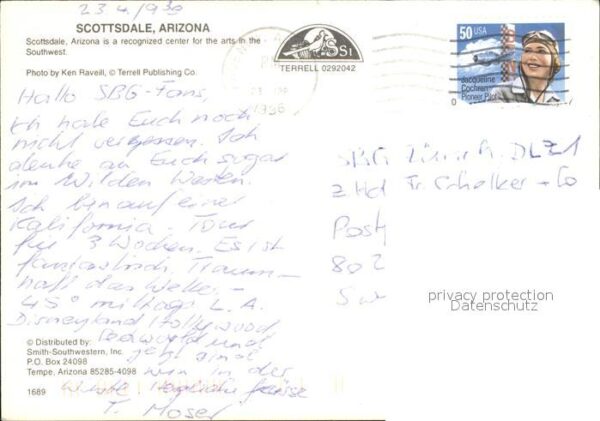 23.4.1996
SCOTTSDALE, ARIZONA
Scottsdale, Arizona is a recognized center for the arts in the
Southwest.
Photo by Ken Raveill, © Terrell Publishing Co.
SSI
TERRELL 0292042
1996
50 USA
Jacqueline
Cochran
Pioneer Pilot
Hallo SBG-Fans,
Ich habe Euch noch
nicht vergessen. Ich
denke an Euch sogar
im Wilden Westen.
Ich bin auf einer
Kalifornia Tour
für 3 Wochen. Es ist
fantastisch. Traum-
haft das Wetter -
45° mittags L.A.
Disneyland Hollywood
und
jetzt sind
wir in der
Wüste. Herzliche Grüsse
T. Moser
SBG Zürich, DLZ1
z Hd Fr. Schalker + Co
Post
802
Sw
privacy protection
Datenschutz
© Distributed by:
Smith-Southwestern, Inc.
P.O. Box 24098
Tempe, Arizona 85285-4098
1689